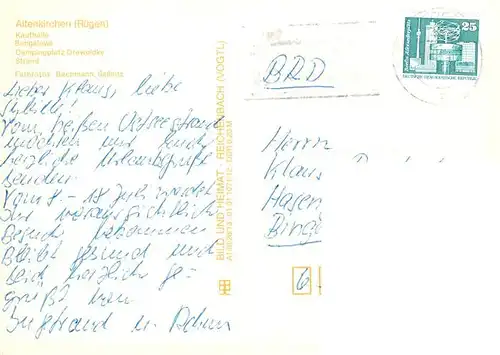 Altenkirchen (Rügen)
Kaufhalle
Bungalows
Campingplatz Drewoldke
Strand
Lieber Klaus, liebe
Sybille!
Vom heißen Ostseestrand
möchten wir Euch
herzliche Urlaubsgrüße
senden.
Vom 8. - 18. Juli werden
wir voraussichtlich
Besuch bekommen
Bleibt gesund und
seid herzlichst ge-
grüßt von
Ingtraud u.
BILD UND HEIMAT · REICHENBACH (VOGTL)
25
DEUTSCHE DEMOKRATISCHE REPUBLIK
BRD
Herrn
Klaus
Hasen
Binge
6